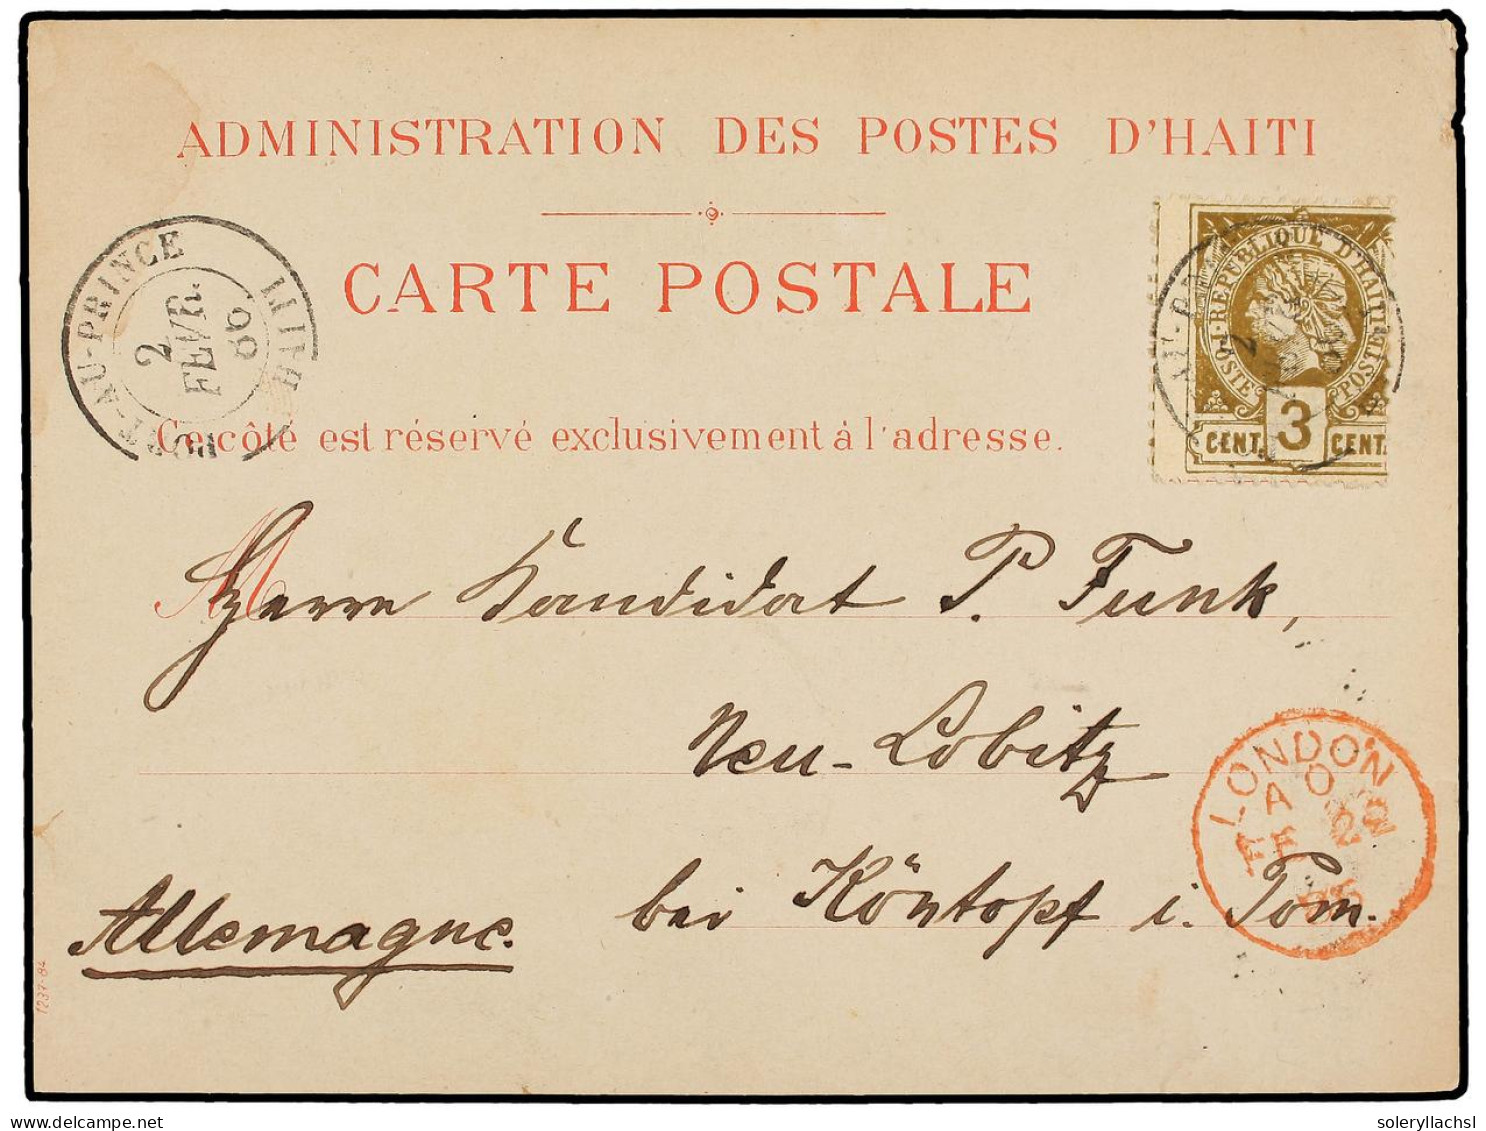 ADMINISTRATION DES POSTES D'HAITI
CARTE POSTALE
PORT-AU-PRINCE HAITI
2
FEVR.
86.
REPUBLIQUE D'HAITI
POSTE POSTE
CENT. 3 CENT.
Ce côté est réservé exclusivement à l'adresse.
M
Herrn Kandidat P. Funk,
Neu-Lobitz
bei Köntopf i. Pom.
Allemagne.
LONDON
A O
FE 22
86
1237-84
soleryllachsl